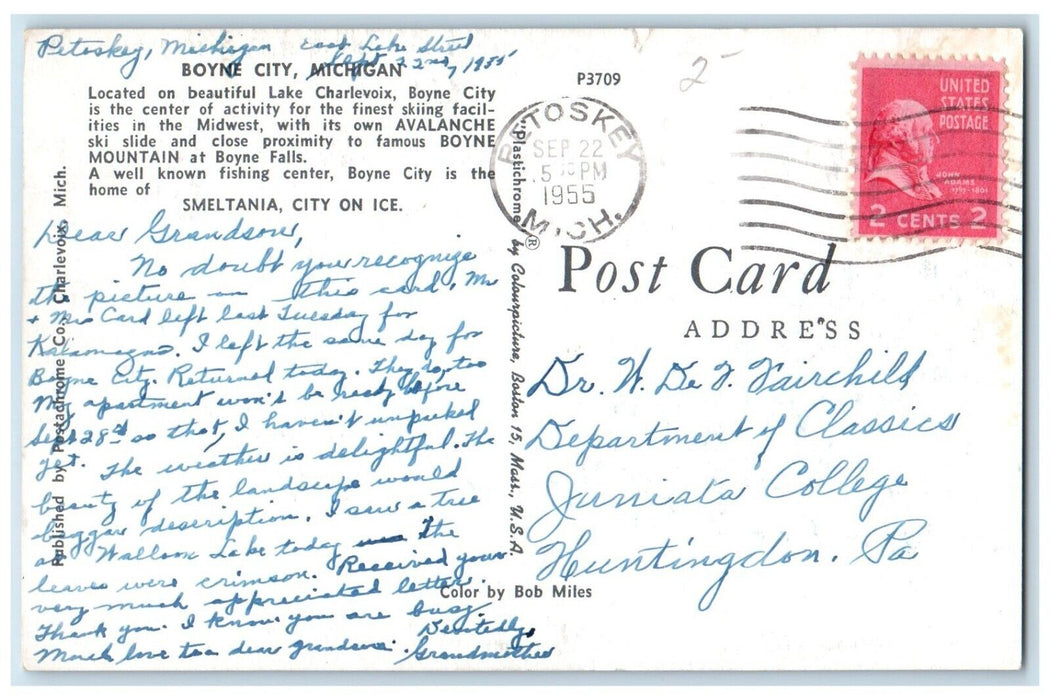 Petoskey, Michigan East Lake Street
Sept 22nd, 1955
BOYNE CITY, MICHIGAN
Located on beautiful Lake Charlevoix, Boyne City
is the center of activity for the finest skiing facil-
ities in the Midwest, with its own AVALANCHE
ski slide and close proximity to famous BOYNE
MOUNTAIN at Boyne Falls.
A well known fishing center, Boyne City is the
home of
SMELTANIA, CITY ON ICE.
Dear Grandson,
No doubt you recognize
the picture on this card. Mr
+ Mrs Card left last Tuesday for
Kalamazoo. I left the same day for
Boyne City. Returned today. They do, too
My apartment won't be ready before
Sept 28th so that, I haven't unpacked
yet. The weather is delightful. The
beauty of the landscape would
beggar description. I saw a tree
at Walloon Lake today the
leaves were crimson. Received your
very much appreciated letter.
Thank you. I know you are busy
Much love to a dear grandson.
Devotedly,
Grandmother
Published by Postachrome Co., Charlevoix, Mich.
P3709
2-
PETOSKEY
SEP 22
5 PM
1955
MICH.
UNITED
STATES
POSTAGE
JOHN
ADAMS
1797-1801
2 CENTS 2
"Plastichrome® by Colourpicture, Boston 15, Mass., U.S.A.
Post Card
ADDRESS
Dr. W. De F. Fairchild
Department of Classics
Juniata College
Huntingdon. Pa
Color by Bob Miles